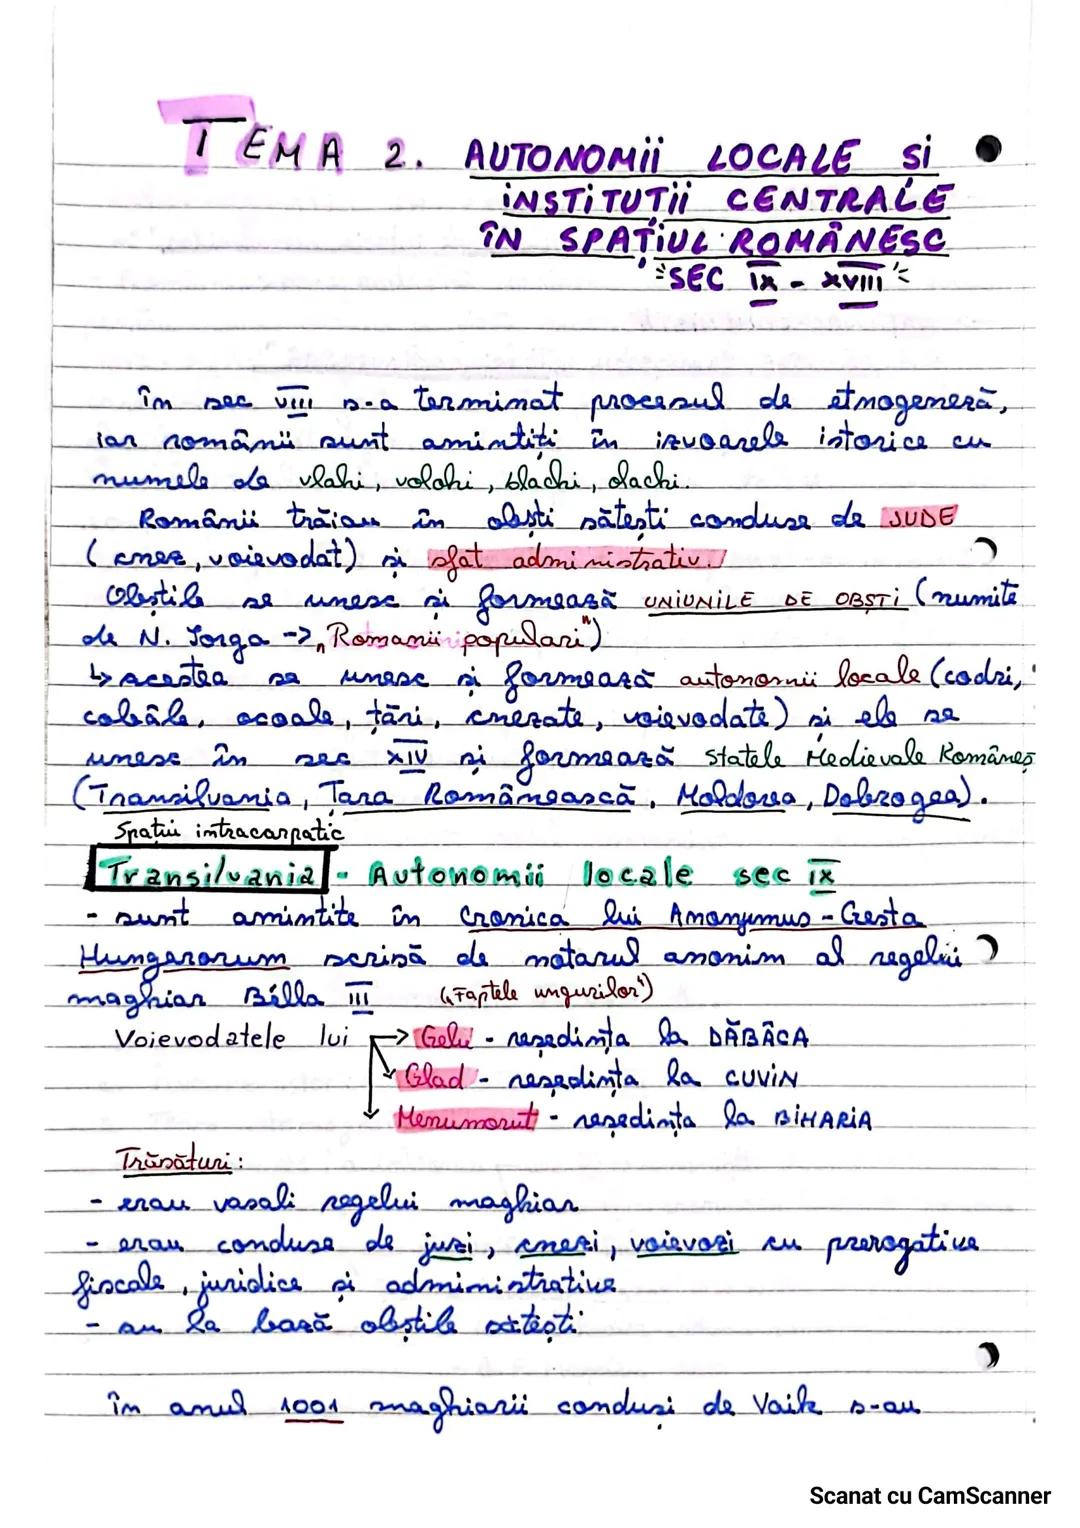 TEMA 2. AUTONOMII LOCALE ȘI
INSTITUȚII CENTRALE
ÎN SPAȚIUL ROMÂNESC
SEC IX - XVIII
în sec VIII s-a terminat procesul de etnogeneză,
iar românii sunt amintiți în izvoarele istorice cu
numele de vlahi, volohi, blachi, olachi.
Românii trăiau în obști sătești conduse de JUDE
(cnez, voievodat) și sfat administrativ.
Obștile se unesc și formează UNIUNILE DE OBȘTI (numite
de N. Iorga -> "Romanii populari")
↳ acestea se unesc și formează autonomii locale (codri,
cobâle, ocoale, țări, cnezate, voievodate) și ele se
unesc în sec XIV și formează Statele Medievale Româneș
(Transilvania, Țara Românească, Moldova, Dobrogea).
Spațiu intracarpatic
Transilvania - Autonomii locale sec IX
- sunt amintite în Cronica lui Anonymus - Gesta
Hungarorum scrisă de notarul anonim al regelui
maghiar Bélla III ("Faptele ungurilor")
Voievodatele lui -> Gelu - reședința la DĂBÂCA
Glad - reședința la CUVIN
Menumorut - reședința la BIHARIA
Trăsături:
- erau vasali regelui maghiar
- erau conduse de juzi, cnezi, voievozi cu prerogative
fiscale, juridice și administrative
- au la bază obștile sătești
în anul 1001 maghiarii conduși de Vaik s-au
Scanat cu CamScanner